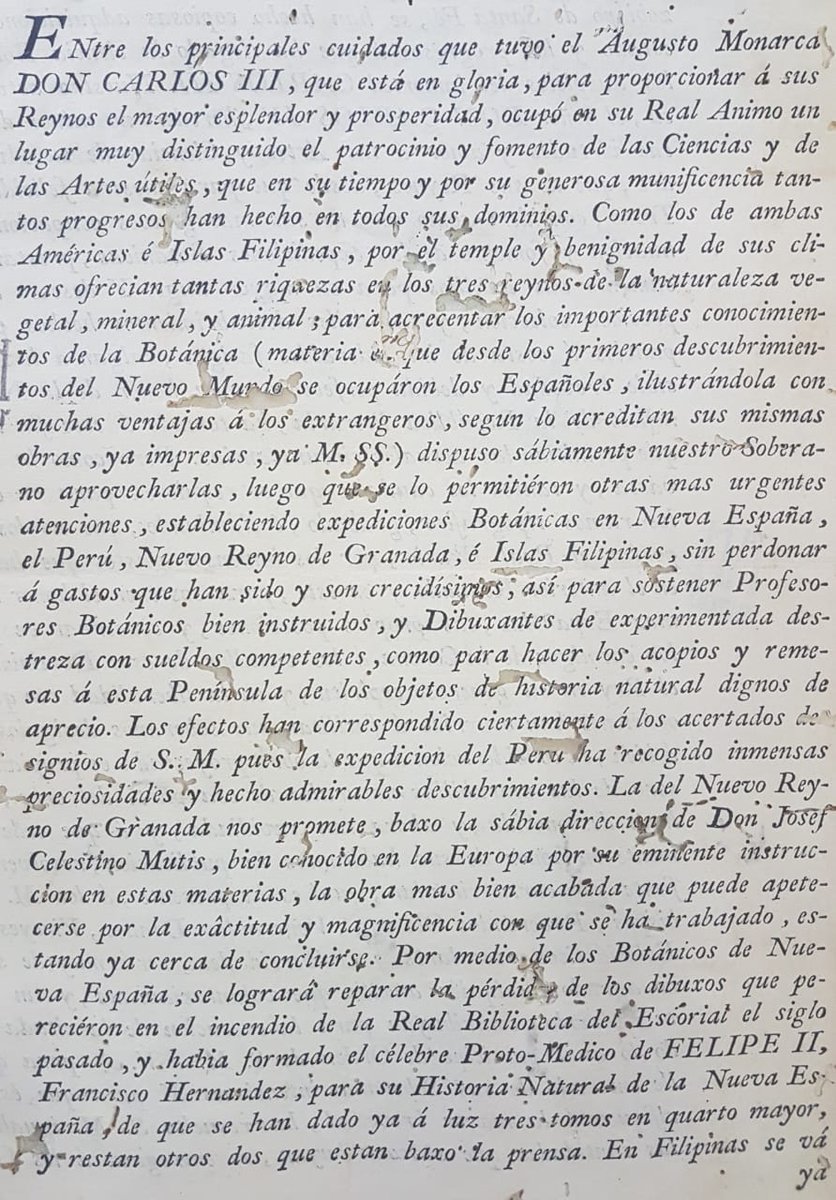 ENtre los principales cuidados que tuvo el Augusto Monarca
DON CARLOS III, que está en gloria, para proporcionar á sus
Reynos el mayor esplendor y prosperidad, ocupó en su Real Animo un
lugar muy distinguido el patrocinio y fomento de las Ciencias y de
las Artes útiles, que en su tiempo y por su generosa munificencia tan-
tos progresos han hecho en todos sus dominios. Como los de ambas
Américas é Islas Filipinas, por el temple y benignidad de sus cli-
mas ofrecian tantas riquezas en los tres reynos de la naturaleza ve-
getal, mineral, y animal; para acrecentar los importantes conocimien-
tos de la Botánica (materia en que desde los primeros descubrimien-
tos del Nuevo Mundo se ocupáron los Españoles, ilustrándola con
muchas ventajas á los extrangeros, segun lo acreditan sus mismas
obras, ya impresas, ya M. SS.) dispuso sábiamente nuestro Sobera-
no aprovecharlas, luego que se lo permitiéron otras mas urgentes
atenciones, estableciendo expediciones Botánicas en Nueva España,
el Perú, Nuevo Reyno de Granada, é Islas Filipinas, sin perdonar
á gastos que han sido y son crecidísimos; así para sostener Profeso-
res Botánicos bien instruidos, y Dibuxantes de experimentada des-
treza con sueldos competentes, como para hacer los acopios y reme-
sas á esta Península de los objetos de historia natural dignos de
aprecio. Los efectos han correspondido ciertamente á los acertados de-
signios de S. M. pues la expedicion del Peru ha recogido inmensas
preciosidades y hecho admirables descubrimientos. La del Nuevo Rey-
no de Granada nos promete, baxo la sábia direccion de Don Josef
Celestino Mutis, bien conocido en la Europa por su eminente instruc-
cion en estas materias, la obra mas bien acabada que puede apete-
cerse por la exâctitud y magnificencia con que se ha trabajado, es-
tando ya cerca de concluirse. Por medio de los Botánicos de Nue-
va España, se logrará reparar la pérdida de los dibuxos que pe-
reciéron en el incendio de la Real Biblioteca del Escorial el siglo
pasado, y habia formado el célebre Proto-Medico de FELIPE II,
Francisco Hernandez, para su Historia Natural de la Nueva Es-
paña, de que se han dado ya á luz tres tomos en quarto mayor,
y restan otros dos que estan baxo la prensa. En Filipinas se vá
ya